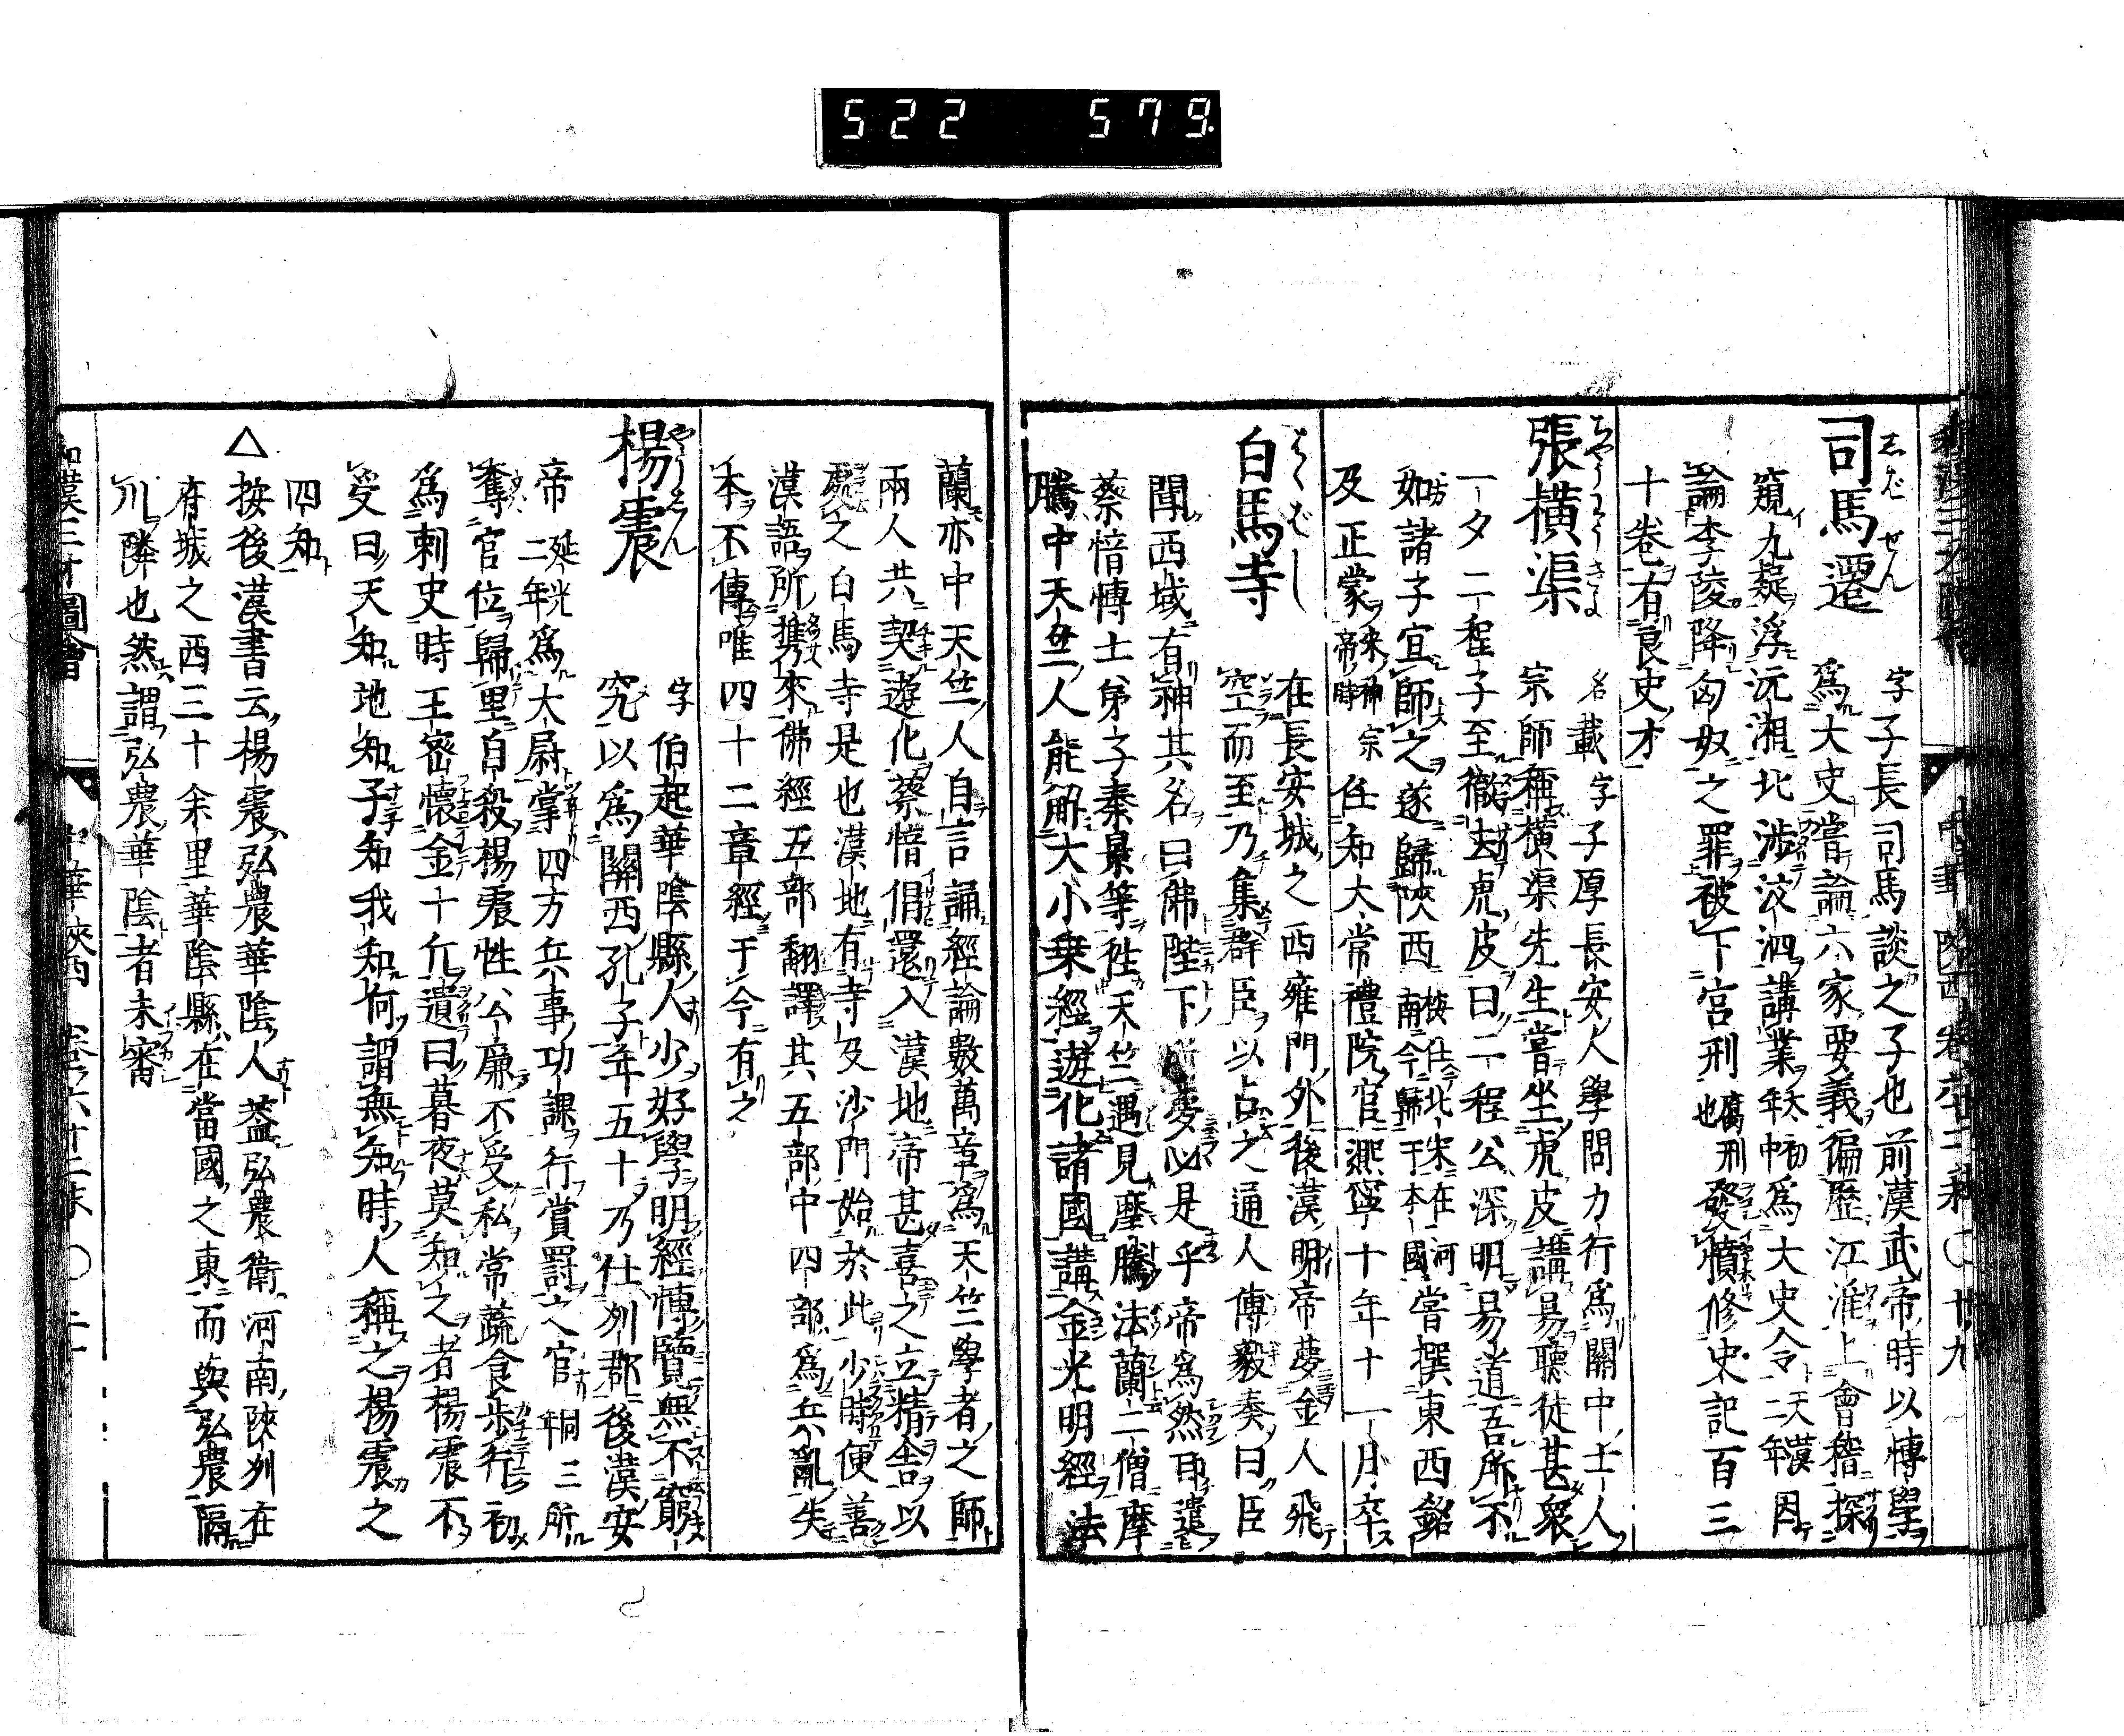 522 579
司馬遷 字子長司馬談之子也前漢武帝時以博學
為大史嘗論六家要義偏歷江淮上會稽探
窺九嶷浮沅湘北涉汶泗講業年太初中為大史令天漢二年因
論李陵降匈奴之罪被下宮刑腐刑也發憤修史記百三
十卷有良史才
張横渠 名載字子厚長安人學問力行為關中士人
宗師稱横渠先生嘗坐虎皮講易聽徒甚衆
一夕二程子至徹去虎皮曰二程公深明易道吾所不
如諸子宜師之遂歸陝西 嘗撰東西銘
及正蒙宋神宗帝時任知大常禮院官凞寧十年十一月卒
白馬寺 在長安城之西雍門外後漢明帝夢金人飛
空而至乃集群臣以占之通人傳毅奏曰臣
聞西域有神其名曰佛陛下所夢必是乎帝為然耳遣
蔡愔博士弟子秦景等徃天竺遇見摩騰法蘭二僧摩
騰中天竺人能解大小乗經遊化諸國講金光明經法
蘭亦中天竺人自言誦經論數萬章為天竺學者之師
兩人共契遊化蔡愔倡還入漢地帝甚喜之立精舎以
處之白馬寺是也漢地有寺及沙門始於此少時便善
漢語所携來佛經五部翻譯其五部中四部為兵亂失
本不傳唯四十二章經于今有之
楊震 字伯起華陰縣人少好學明經博覽無不窮
究以為關西孔子年五十乃仕州郡後漢安
帝延光二年為大尉掌四方兵事功課行賞罰之官 三所
奪官位歸里自殺楊震性公廉不受私常蔬食歩行初
為刺史時王密懷金十斤遺曰暮夜莫知之者楊震不
受曰天知地知子知我知何謂無知時人稱之楊震之
四知
△按後漢書云楊震弘農華陰人葢弘農衛河南陝州在
府城之西三十余里華陰縣在當國之東而與弘農隔
川隣也然謂弘農華陰者未審
和漢三才圖會 中華陝西 卷六十二末 〇二十